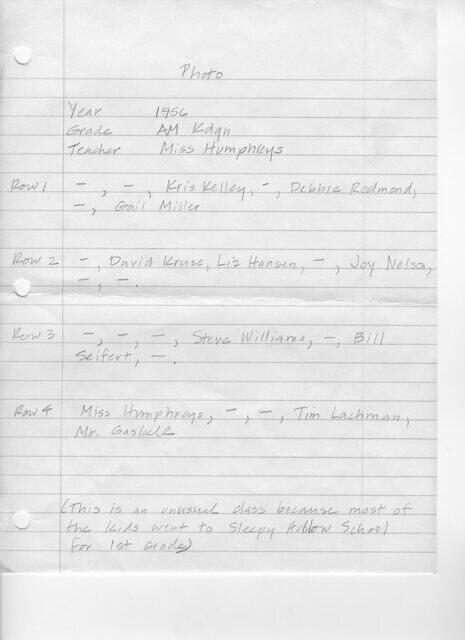 Photo
Year 1956
Grade AM Kdgn
Teacher Miss Humphreys
Row 1 -, -, Kris Kelley, -, Debbie Redmond,
-, Gail Miller
Row 2 -, David Kruse, Liz Hansen, -, Joy Nelson,
-, -.
Row 3 -, -, -, Steve Williams, -, Bill
Seifert, -.
Row 4 Miss Humphreys, -, -, Tim Lachman,
Mr. Gaskell
(This is an unusual class because most of
the kids went to Sleepy Hollow School
for 1st Grade)